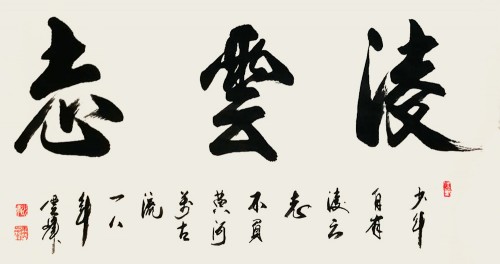 淩雲志
少年
自有
凌云
志
不負
黄河
萬古
流
一八
年